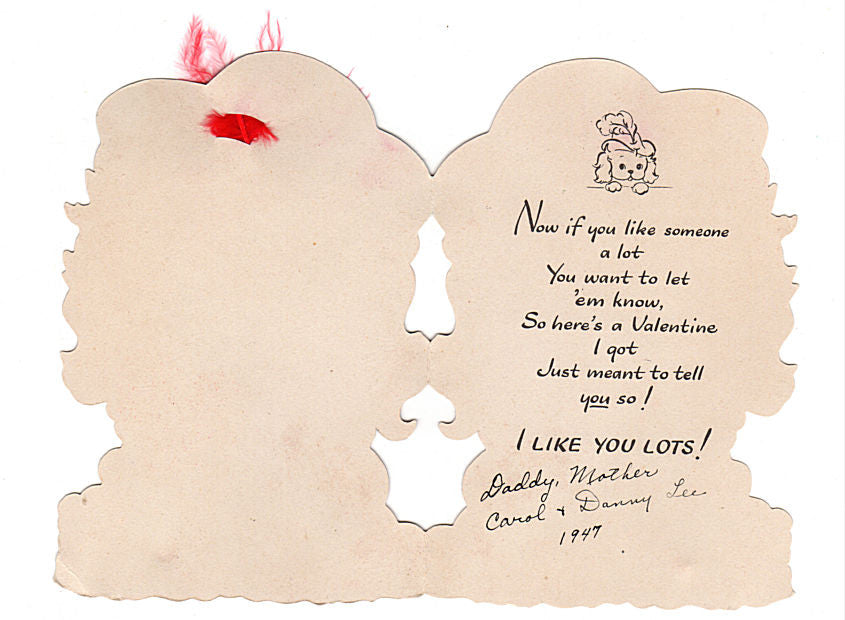 Now if you like someone
a lot
You want to let
'em know,
So here's a Valentine
I got
Just meant to tell
you so!
I LIKE YOU LOTS!
Daddy, Mother
Carol + Danny Lee
1947